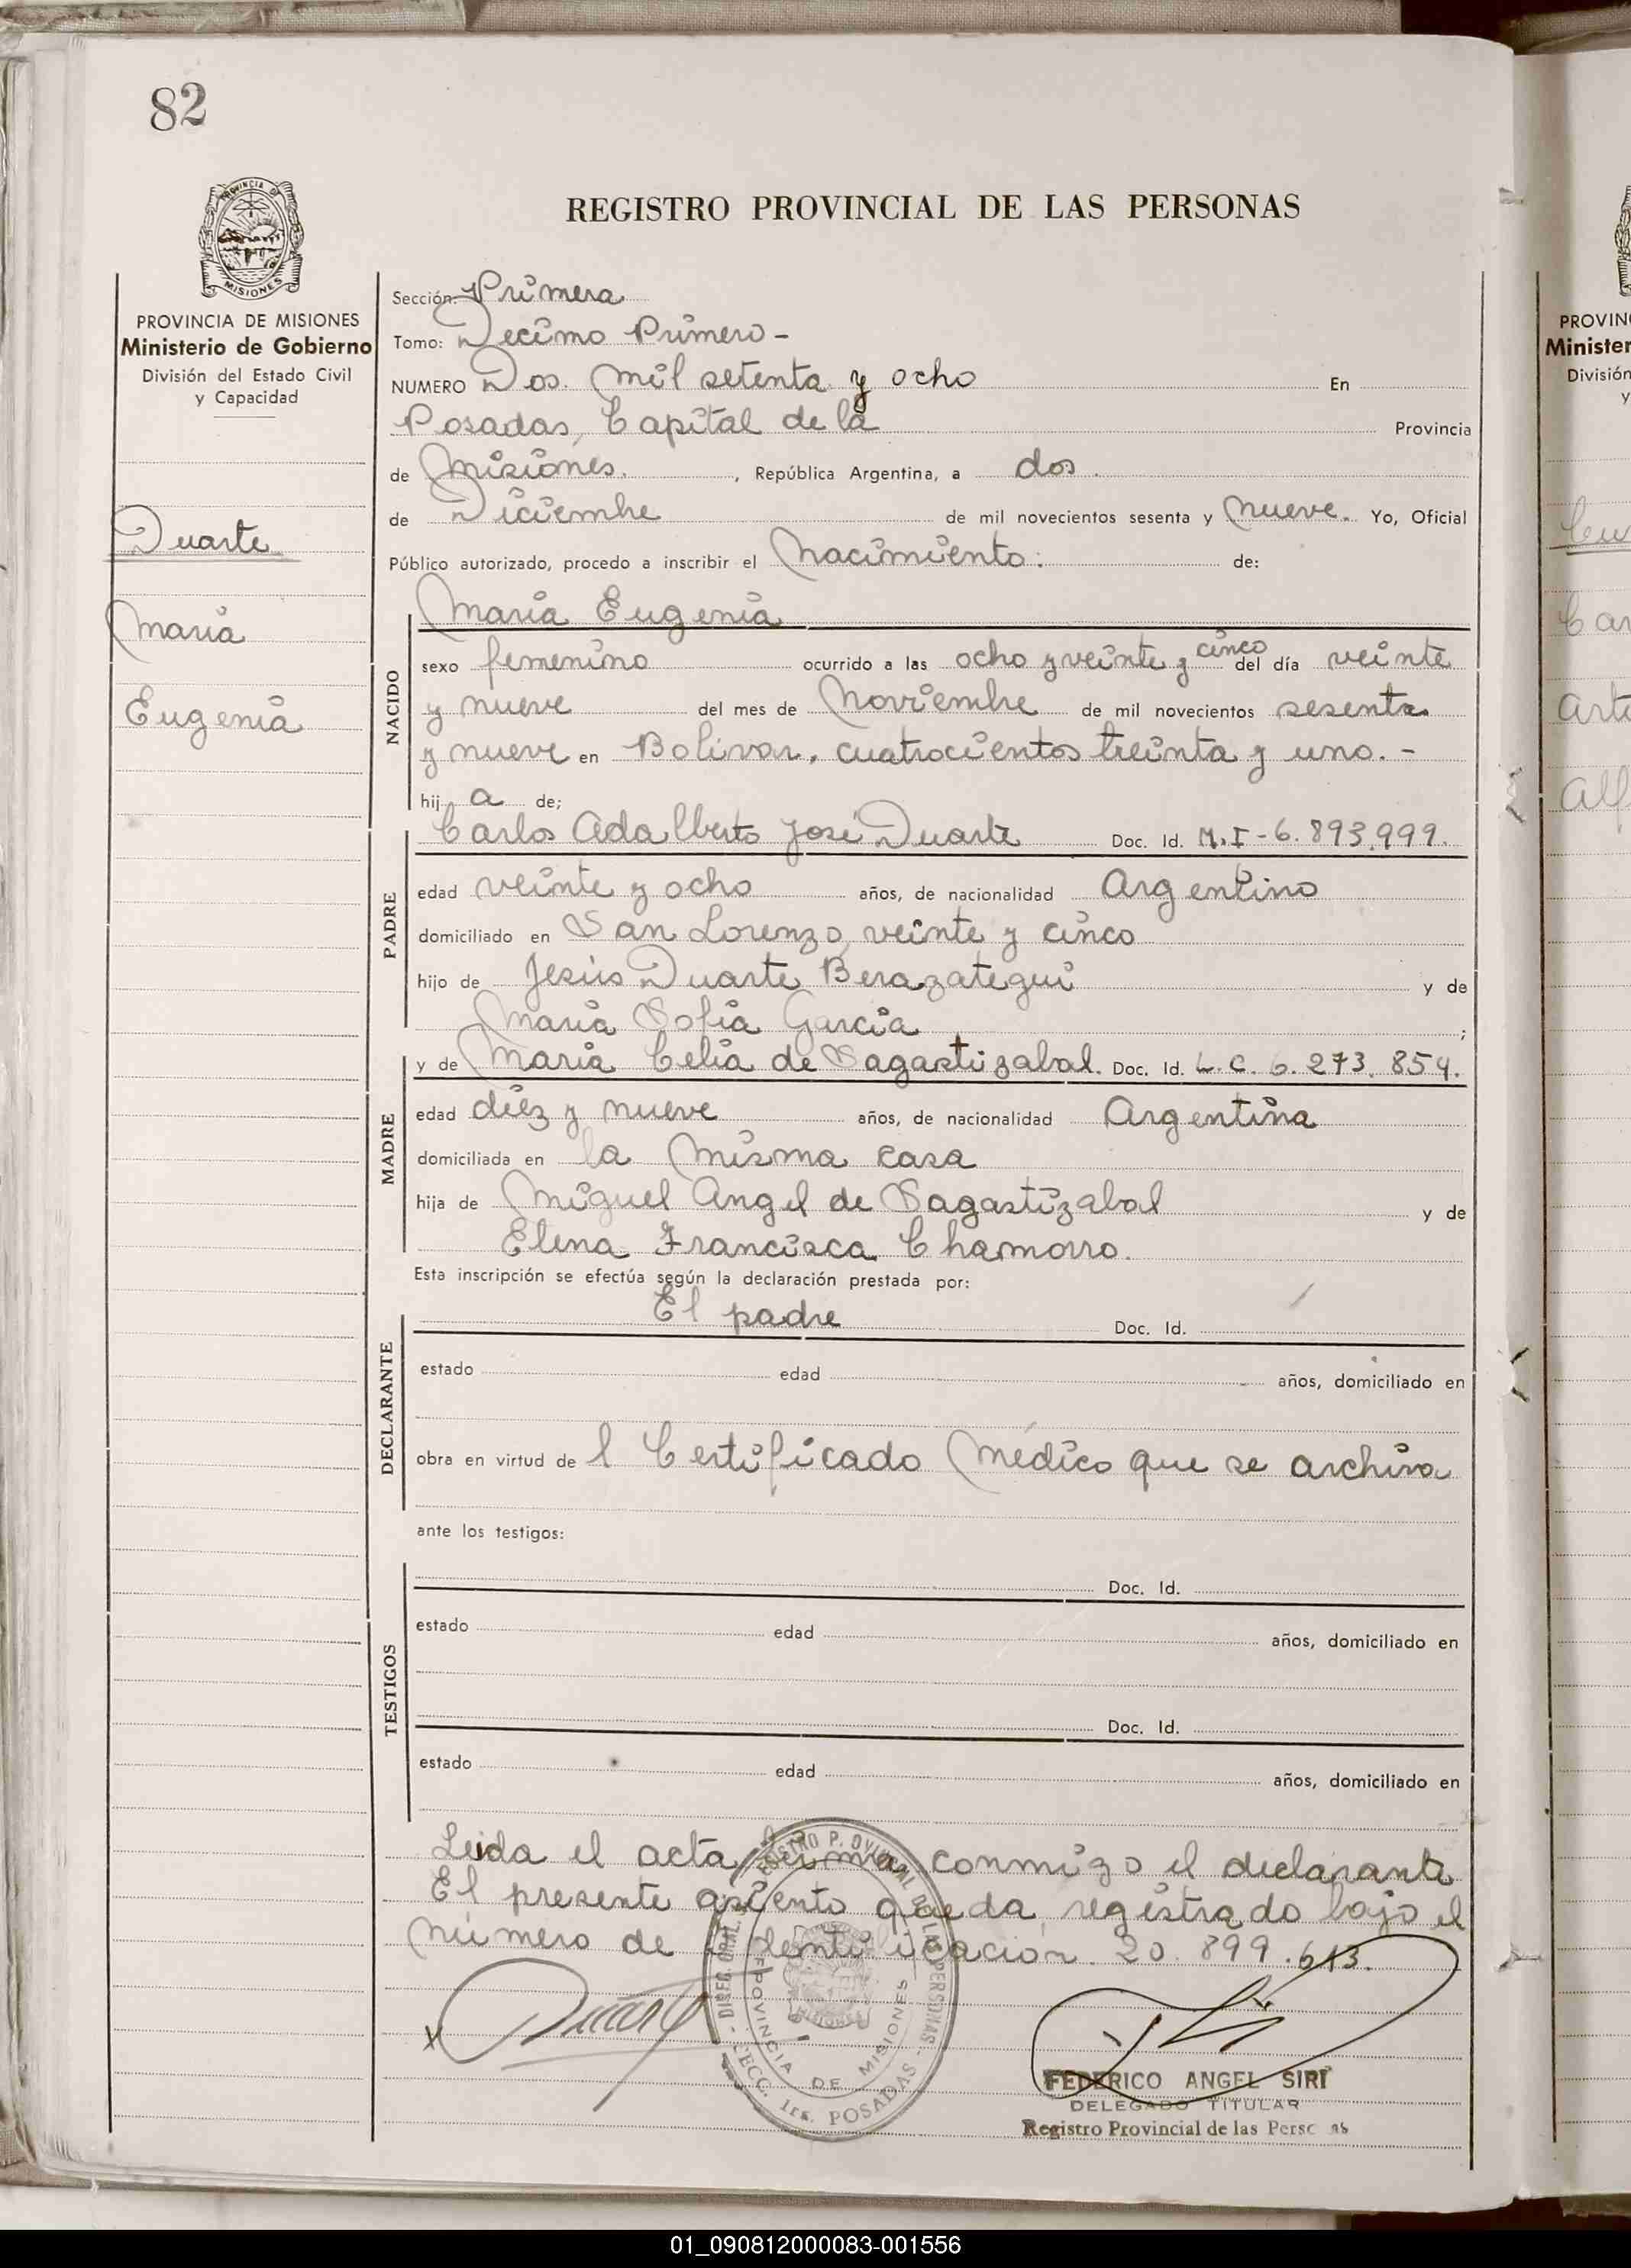 82
PROVINCIA DE
MISIONES
REGISTRO PROVINCIAL DE LAS PERSONAS
PROVINCIA DE MISIONES
Ministerio de Gobierno
División del Estado Civil
y Capacidad
Duarte
Maria
Eugenia
Sección: Primera
Tomo: Decimo Primero -
NUMERO Dos mil setenta y ocho En
Posadas, Capital de la Provincia
de Misiones. , República Argentina, a dos.
de Diciembre de mil novecientos sesenta y nueve. Yo, Oficial
Público autorizado, procedo a inscribir el Nacimiento: de:
Maria Eugenia
NACIDO
sexo femenino ocurrido a las ocho y veinte y cinco del día veinte
y nueve del mes de Noviembre de mil novecientos sesenta
y nueve en Bolivar, cuatrocientos treinta y uno. -
hij a de;
Carlos Adalberto José Duarte Doc. Id. M.I-6.893.999.
PADRE
edad veinte y ocho años, de nacionalidad Argentino
domiciliado en San Lorenzo, veinte y cinco
hijo de Jesús Duarte Berazategui y de
Maria Sofia Garcia ;
y de Maria Celia de Sagastizabal. Doc. Id. L.C. 6.273.854.
MADRE
edad diez y nueve años, de nacionalidad Argentina
domiciliada en la misma casa
hija de Miguel Angel de Sagastizabal y de
Elena Francisca Chamorro.
Esta inscripción se efectúa según la declaración prestada por:
El padre Doc. Id.
DECLARANTE
estado edad años, domiciliado en
obra en virtud de l Certificado Médico que se archiva
ante los testigos:
Doc. Id.
TESTIGOS
estado edad años, domiciliado en
Doc. Id.
estado edad años, domiciliado en
Leida el acta, firma conmigo el declarante
El presente asiento queda registrado bajo el
número de identificación 20.899.613.
Duarte
PROVINCIA DE MISIONES
POSADAS
FEDERICO ANGEL SIRI
DELEGADO TITULAR
Registro Provincial de las Personas
PROVIN
Minister
División
y
01_090812000083-001556